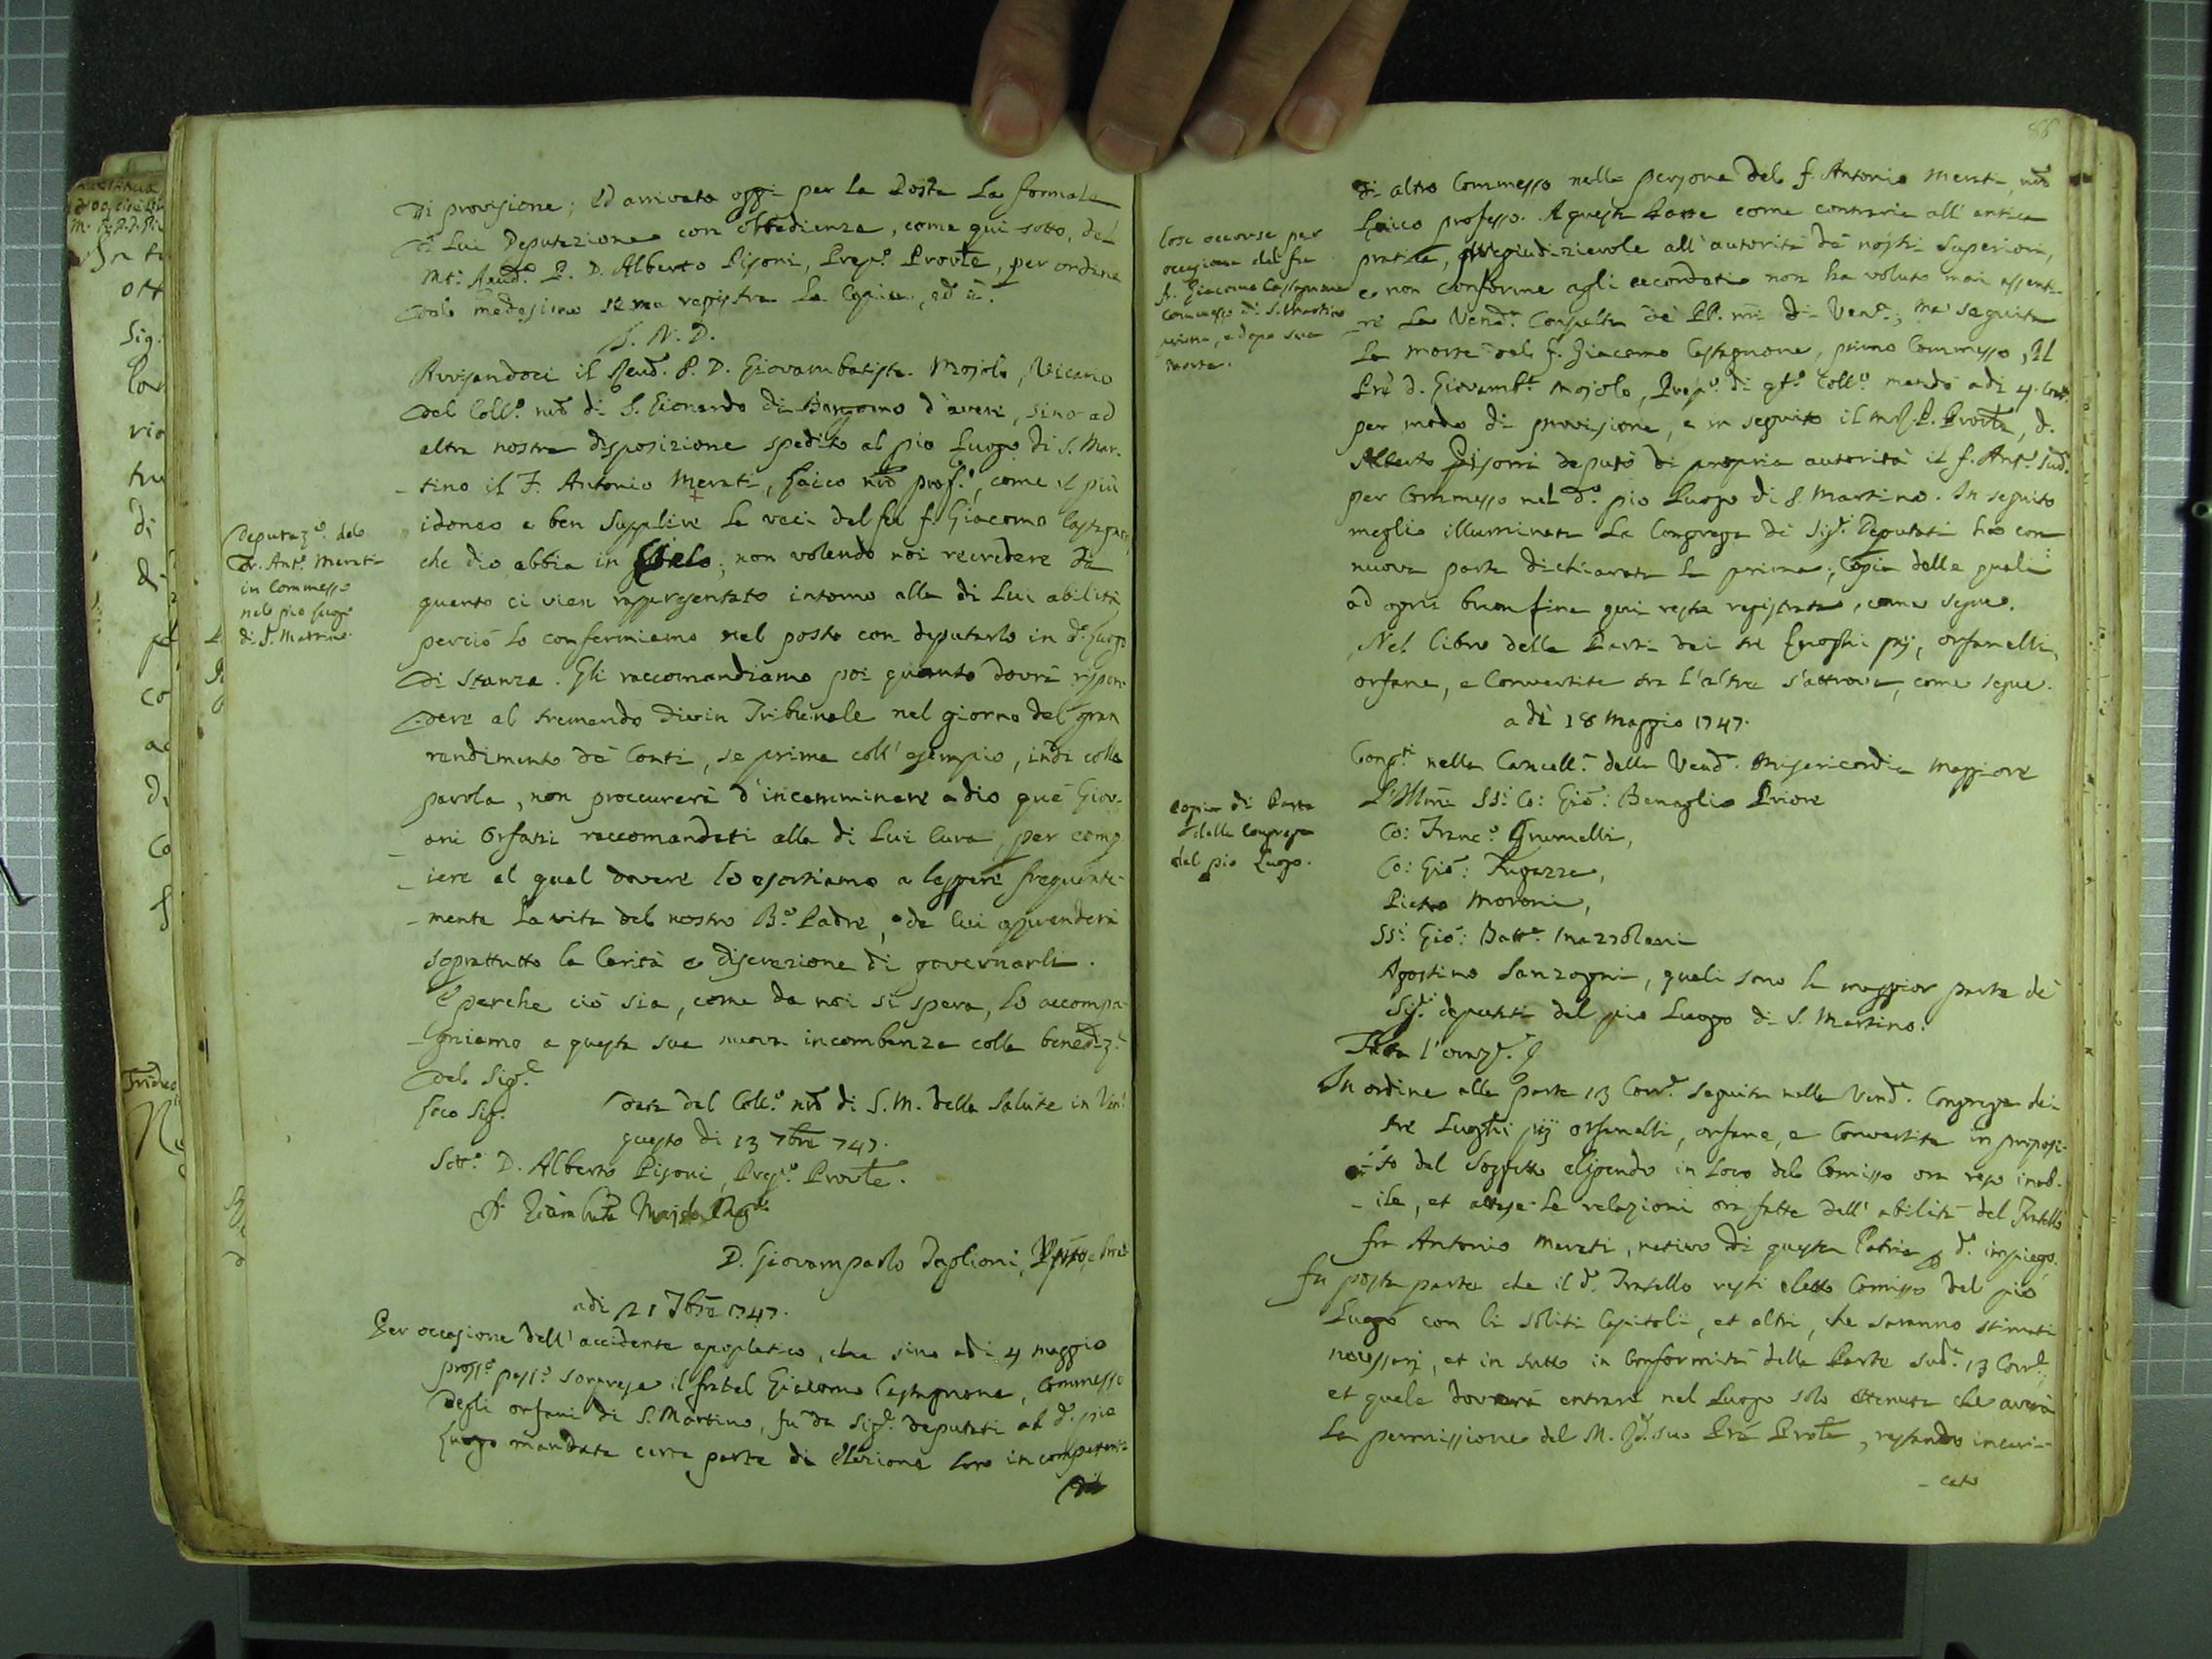 di provisione; ed arrivata oggi per la Posta la formale
di Lui Deputazione con obbedienza, come qui sotto, del
M.to Rend.o P. D. Alberto Pisoni, Prep.o Prov̄le, per ordine
del medesimo se ne registra la Copia, ed è.
L. N. D.
Avvisandoci il Rend.o P. D. Giovambatista Mojolo, Vicario
del Coll.o nr̄o di S. Lionardo di Bergamo d'aver, sino ad
altra nostra disposizione spedito al pio Luogo di S. Mar-
-tino il F. Antonio Merati, Laico nr̄o prof.o, come il più
idoneo a ben supplire le veci del fu f. Giacomo Castagnone
che dio abbia in Cielo; non volendo noi recredere da
quanto ci vien rappresentato intorno alla di Lui abilità,
perciò lo confermiamo nel posto con deputarlo in d.o Luogo
di stanza. Gli raccomandiamo poi quanto dovrà rispon-
-dere al tremendo divin Tribunale nel giorno del gran
rendimento de' Conti, se prima coll' esempio, indi colla
parola, non proccurerà d'incamminare a dio que' Giov-
-ani Orfani raccomandati alla di Lui Cura, per comp-
-iere al qual dovere lo esortiamo a leggere frequente-
-mente la vita del nostro B.o Padre, e da lui apprenderà
soprattutto la Carità e discrezione di governarli.
E perche ciò sia, come da noi si spera, lo accompa-
-gniamo a questa sua nuova incombenza colla benediz.e
del Sig.e
Loco Sig. Data dal Coll.o nr̄o di S. M. della Salute in Ven.a
questo di 13 7bre 747.
Sott.o D. Alberto Pisoni, Prep.o Prov̄le.
D. Giovampaolo Taglioni,
adi 21 7bre 1747.
Per occasione dell' accidente apopletico, che sino adi 4 maggio
pross.o pass.o sorprese il fratel Giacomo Castagnone, Commesso
degli orfani di S. Martino, fu da Sig.i deputati al d.o pio
Luogo mandata certa parte di elezione loro incompetente
Deputaz.e del
Fr. Ant.o Merati
in Commesso
nel pio Luogo
di S. Martino.
86
di altro Commesso nella persona del f. Antonio Merati, nr̄o
Laico professo. A questa Parte come contraria all' antica
pratica, pregiudizievole all' autorità de' nostri Superiori,
e non conforme agli accordati non ha voluto mai assenti-
-re la Vend.a Consulta de' PP. nr̄i di Ven.a; ma seguita
la morte del f. Giacomo Castagnone, primo Commesso, Il
Pre' d. Giovamb.a Mojolo, Prep.o di q.to Coll.o mandò adi 4. Corr.te
per modo di provisione, e in seguito il P. Prov̄le, d.
Alberto Pisoni deputò di propria autorità il f. Ant.o sud.o
per Commesso nel d.o pio Luogo di S. Martino. In seguito
meglio illuminata la Congrega di Sig.i Deputati ha con
nuova parte dichiarata la prima; Copia delle quali
ad ogni buon fine qui resta registrata, come segue.
Nel libro delle Parti dei tre Luoghi pij, orfanelli,
orfane, e Convertite tra l'altre s'attrova, come segue.
adi 18 Maggio 1747.
Cong.ti nella Cancell.a della Vend.a Misericordia Maggiore
L'Ill.mi SS.i Co: Gio: Benaglio Priore
Co: Franc.o Grumelli,
Co: Gio: Fugazza,
Pietro Moroni,
SS.i Gio: Batt.a Mazzoleni
Agostino Sanzogni, quali sono la maggior parte de'
Sig.i deputati del pio Luogo di S. Martino.
Fatta l'oraz.e
In ordine alla parte 13 Corr.e seguita nella Vend.a Congrega dei
tre Luoghi pij orfanelli, orfane, e Convertite in proposi-
-to del Soggetto eligendo in loco del Comisso ora reso inab-
-ile, et attese le relazioni ora fatte dell' abilità del Fratello
fra Antonio Merati, nativo di questa Patria p d.o impiego,
fu posta parte che il d.o Fratello resti eletto Comisso del pio
Luogo con li soliti Capitoli, et altri, che saranno stimati
necessarj, et in tutto in Conformità della Parte sud.a 13 Corr.e,
et quale dovrà entrare nel Luogo solo ottenuta che averà
la permissione del M. R.do suo Pre' Prov̄le, restando incari-
-cato
Cose occorse per
occasione del fu
f. Giacomo Castagnone
commesso di S. Martino
prima, e dopo sua
morte.
Copia di Parte
della Congrega
del pio Luogo.